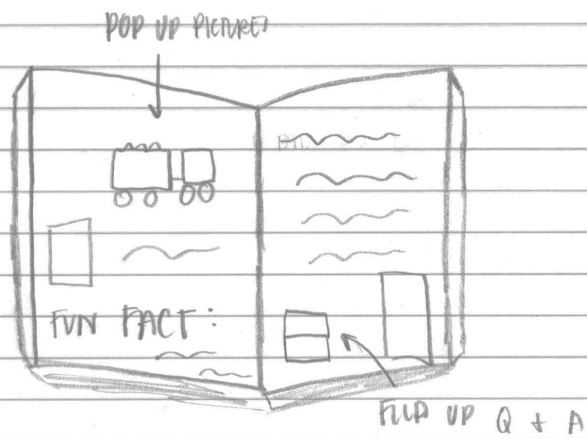 POP UP PICTURES
FUN FACT:
FLIP UP Q + A